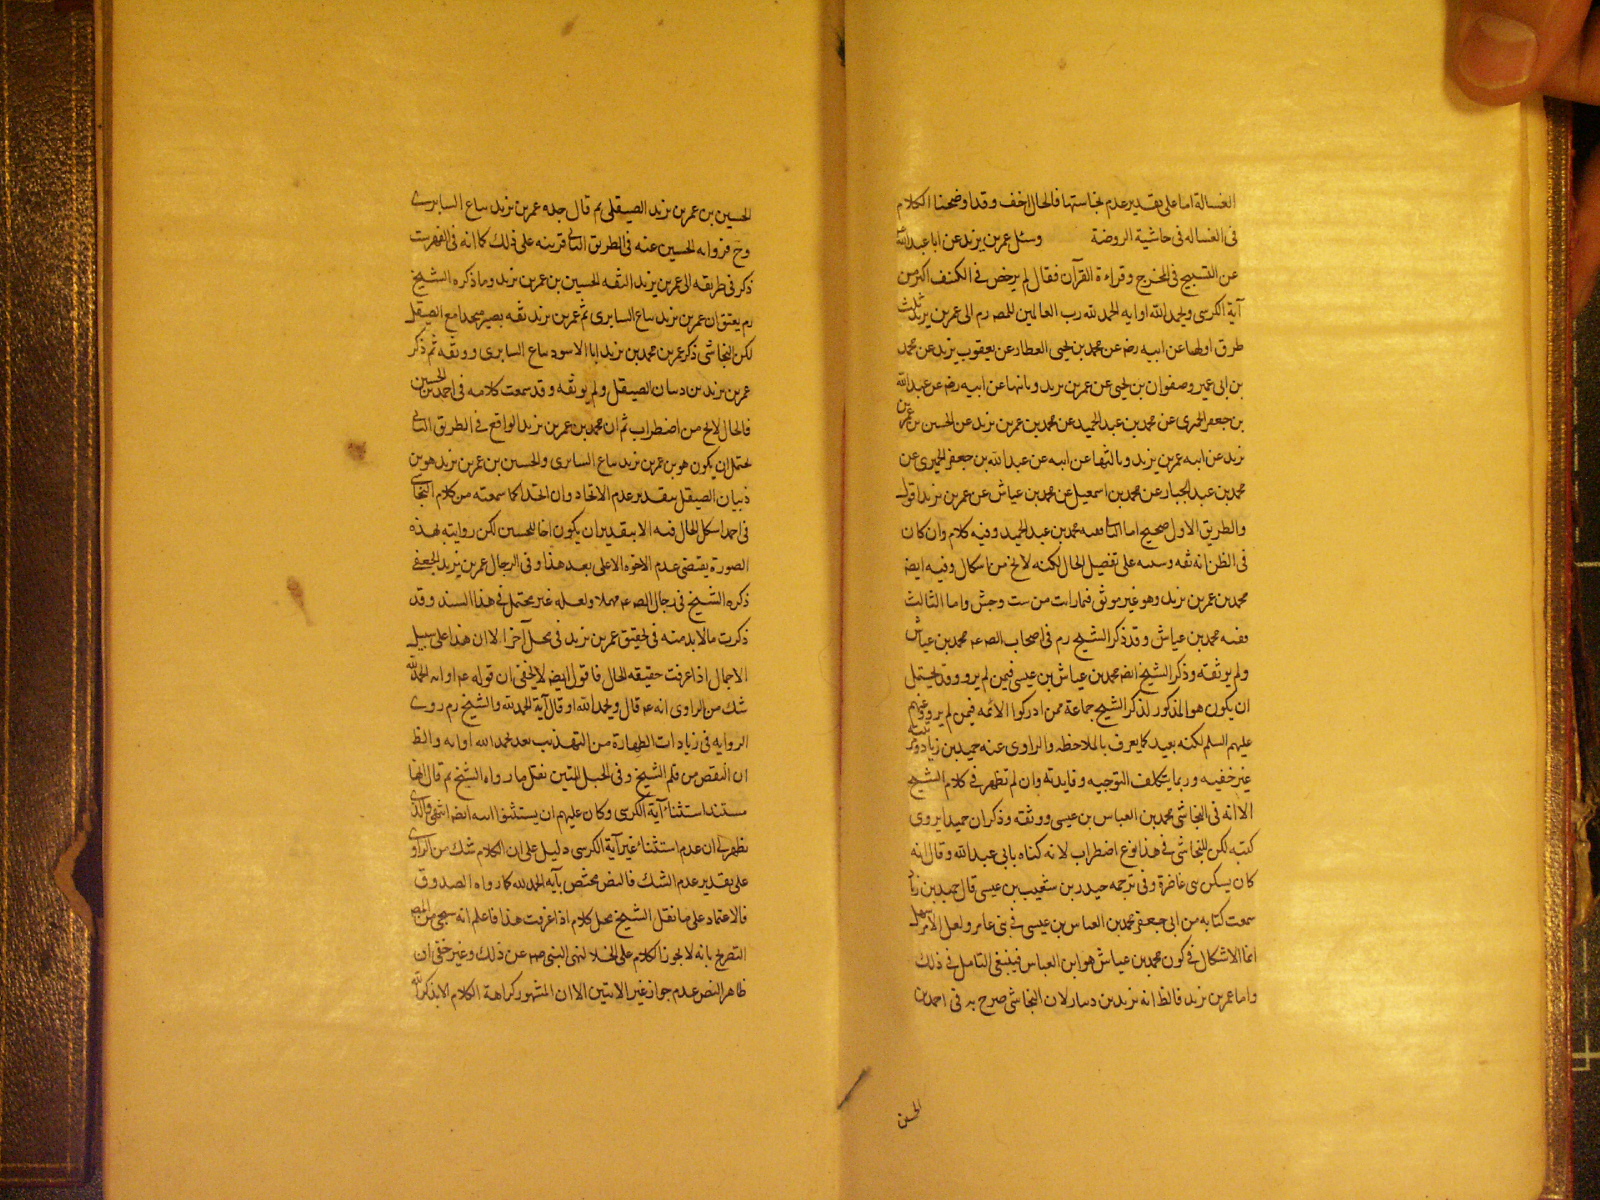 الغسالة اما على تقدير عدم نجاستها فالحال اخف وقد اوضحنا الكلام
فى الغساله فى حاشية الروضة وسئل عمر بن يزيد عن ابا عبد الله
عن التسبيح فى المخرج وقراءة القرآن فقال لم يرخص فى الكنف اكثر من
آية الكرسى ويحمد الله او ايه الحمد لله رب العالمين للمص رم الى عمر بن يزيد ثلث
طرق اولها عن ابيه رضه عن محمد بن يحيى العطار عن يعقوب يزيد عن محمد
بن ابى عمير وصفوان بن يحيى عن عمر بن يزيد وثانها عن ابيه رضه عن عبد الله
بن جعفر الحميرى عن محمد بن عبد الحميد عن محمد بن عمر بن يزيد عن الحسين بن عمر بن
يزيد عن ابيه عمر بن يزيد وثالثها عن ابيه عن عبد الله بن جعفر الحميرى عن
محمد بن عبد الجبار عن محمد بن اسمعيل عن محمد بن عياش عن عمر بن يزيد اقول
والطريق الاول صحيح اما الثا ففيه محمد بن عبد الحميد وفيه كلام وان كان
فى الظن انه ثقه على تفصيل الحال لكنه لا يخ من اشكال وفيه ايضه
محمد بن عمر بن يزيد وهو غير موثق فيما رايت من ست وجش واما الثالث
ففيه محمد بن عياش وقد ذكر الشيخ رم فى اصحاب الص عه محمد بن عياش
ولم يوثقه وذكر الشيخ ايضه محمد بن عياش بن عيسى فيمن لم يرو وقد يحتمل
ان يكون هو المذكور لذكر الشيخ جماعة ممن ادركوا الائمه فيمن لم يرو عنهم
عليهم السلم لكنه بعيد كما يعرف بالملاحظه والراوى عنه حميد بن زياد
غير خفيه وربما يتكلف التوجيه وفايدته وان لم تظهر فى كلام الشيخ
الا انه فى النجاشى محمد بن العباس بن عيسى ووثقه وذكر ان حميدا يروى
كتبه لكن للنجاشى فى هذا نوع اضطراب لانه كناه بابى عبد الله وقال انه
كان يسكن بنى غاضرة وفى ترجمه حيدر بن شعيب بن عيسى قال حميد بن زيا
سمعت كتابه من ابى جعفر محمد بن العباس بن عيسى فى بنى عامر ولعل الامر سهل
انما الاشكال فى كون محمد بن عياش هو ابن العباس فينبغى التامل فى ذلك
واما عمر بن يزيد فالظ انه يزيد بن لان النجاشى صرح به فى احمد بن
الحسين
الحسين بن عمر بن يزيد الصيقلى ثم قال جده عمر بن يزيد بياع السابرى
وح فرواية الحسين عنه فى الطريق الثانى قرينه على ذلك كما انه فى الفهرست
ذكر فى طريقه الى عمر بن يزيد الثقه الحسين بن عمر بن يزيد وما ذكره الشيخ
رم يعتق ان عمر بن يزيد بياع السابرى ثم عمر بن يزيد ثقه بصير متحدا مع الصيقل
لكن النجاشى ذكر عمر بن محمد بن يزيد ابا الاسود بياع السابرى ووثقه ثم ذكر
عمر بن يزيد بن ذبيان الصيقل ولم يوثقه وقد سمعت كلامه فى احمد بن الحسين
فالحال لا يخ من اضطراب ثم ان محمد بن عمر بن يزيد الواقع فى الطريق الثانى
يحتمل ان يكون هو بن عمر بن يزيد بياع السابرى والحسين بن عمر بن يزيد هو بن
ذبيان الصيقل بتقدير عدم الاتحاد وان اتحدا كما سمعته من كلام النجاشى
فى احمد اشكل الحال فيه الا بتقدير ان يكون اخا للحسين لكن روايته بهذه
الصورة يقتضى عدم الاخوه الا على بعد هذا وفى الرجال عمر بن يزيد الجعفى
ذكره الشيخ فى رجال الص عه مهملا ولعله غير محتمل فى هذا السند وقد
ذكرت ما لابد منه فى تحقيق عمر بن يزيد فى محل آخر الا ان هذا على سبيل
الاجمال اذا عرفت حقيقه الحال فاقول ايضه لا يخفى ان قوله عه او ايه الحمد لله
شك من الراوى انه عه قال ويحمد الله او قال آية الحمد لله والشيخ رم روى
الروايه فى زيادات الطهارة من التهذيب بعد يحمد الله او ايه والظ
ان النقص من قلم الشيخ وفى الحبل المتين نقل ما رواه الشيخ ثم قال انها
مستند استثناء آية الكرسى وكان عليهم ان يستثنوا ايضه انتهى والذى
يظهر لى ان عدم استثناء غير آية الكرسى دليل على ان الكلام شك من الراوى
على تقدير عدم الشك فالنص مختص بآيه الحمد لله كما رواه الصدوق
فالاعتماد على ما نقل الشيخ محل كلام اذا عرفت هذا فاعلم انه سيجئ من المص
التصريح بانه لا يجوز الكلام على الخلا لنهى النبى صه عن ذلك وغير خفى ان
ظاهر النص عدم جواز غير الايتين الا ان المشهور كراهة الكلام الا بذكر الله